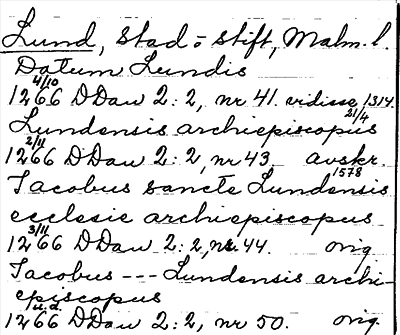 Lund, Stad o stift, Malm. l.
Datum Lundis
4/10
1266 DDan 2:2, nr 41. vidisse 1314.
21/4
Lundensis archiepiscopus
2/11
1266 DDan 2:2, nr 43. avskr.
1578
Jacobus sancte Lundensis
ecclesie archiepiscopus
3/11
1266 DDan 2:2, nr. 44. orig
Jacobus --- Lundensis archi-
episcopus
u.d.
1266 DDan 2:2, nr 50. orig.